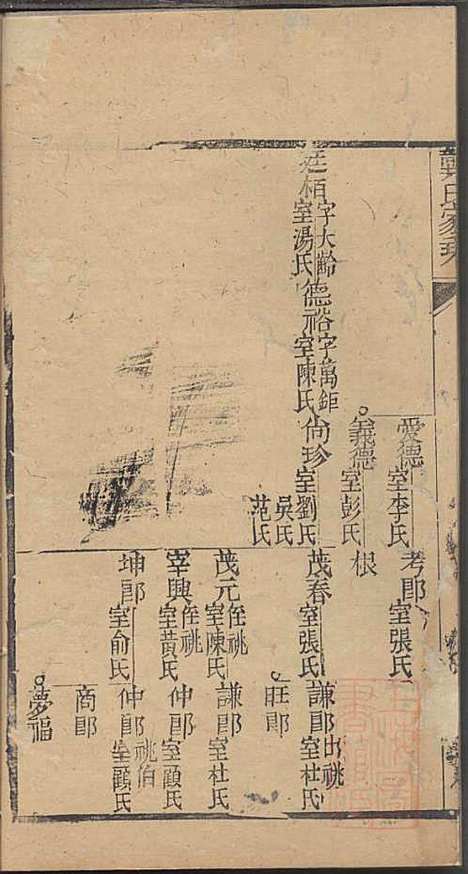 戴氏家乘
愛德 室李氏 考郎 室張氏
義德 室彭氏 根
廷栢 字大齡 室湯氏 德裕 字萬鉅 室陳氏 尙珍 室劉氏 吳氏 范氏
茂春 室張氏 謙郎 出祧 室杜氏
旺郎
茂元 侄祧 室陳氏 謙郎 室杜氏
宰興 侄祧 室黃氏 仲郎 室顧氏
坤郎 室俞氏 仲郎 祧伯 室顧氏
商郎
夢福